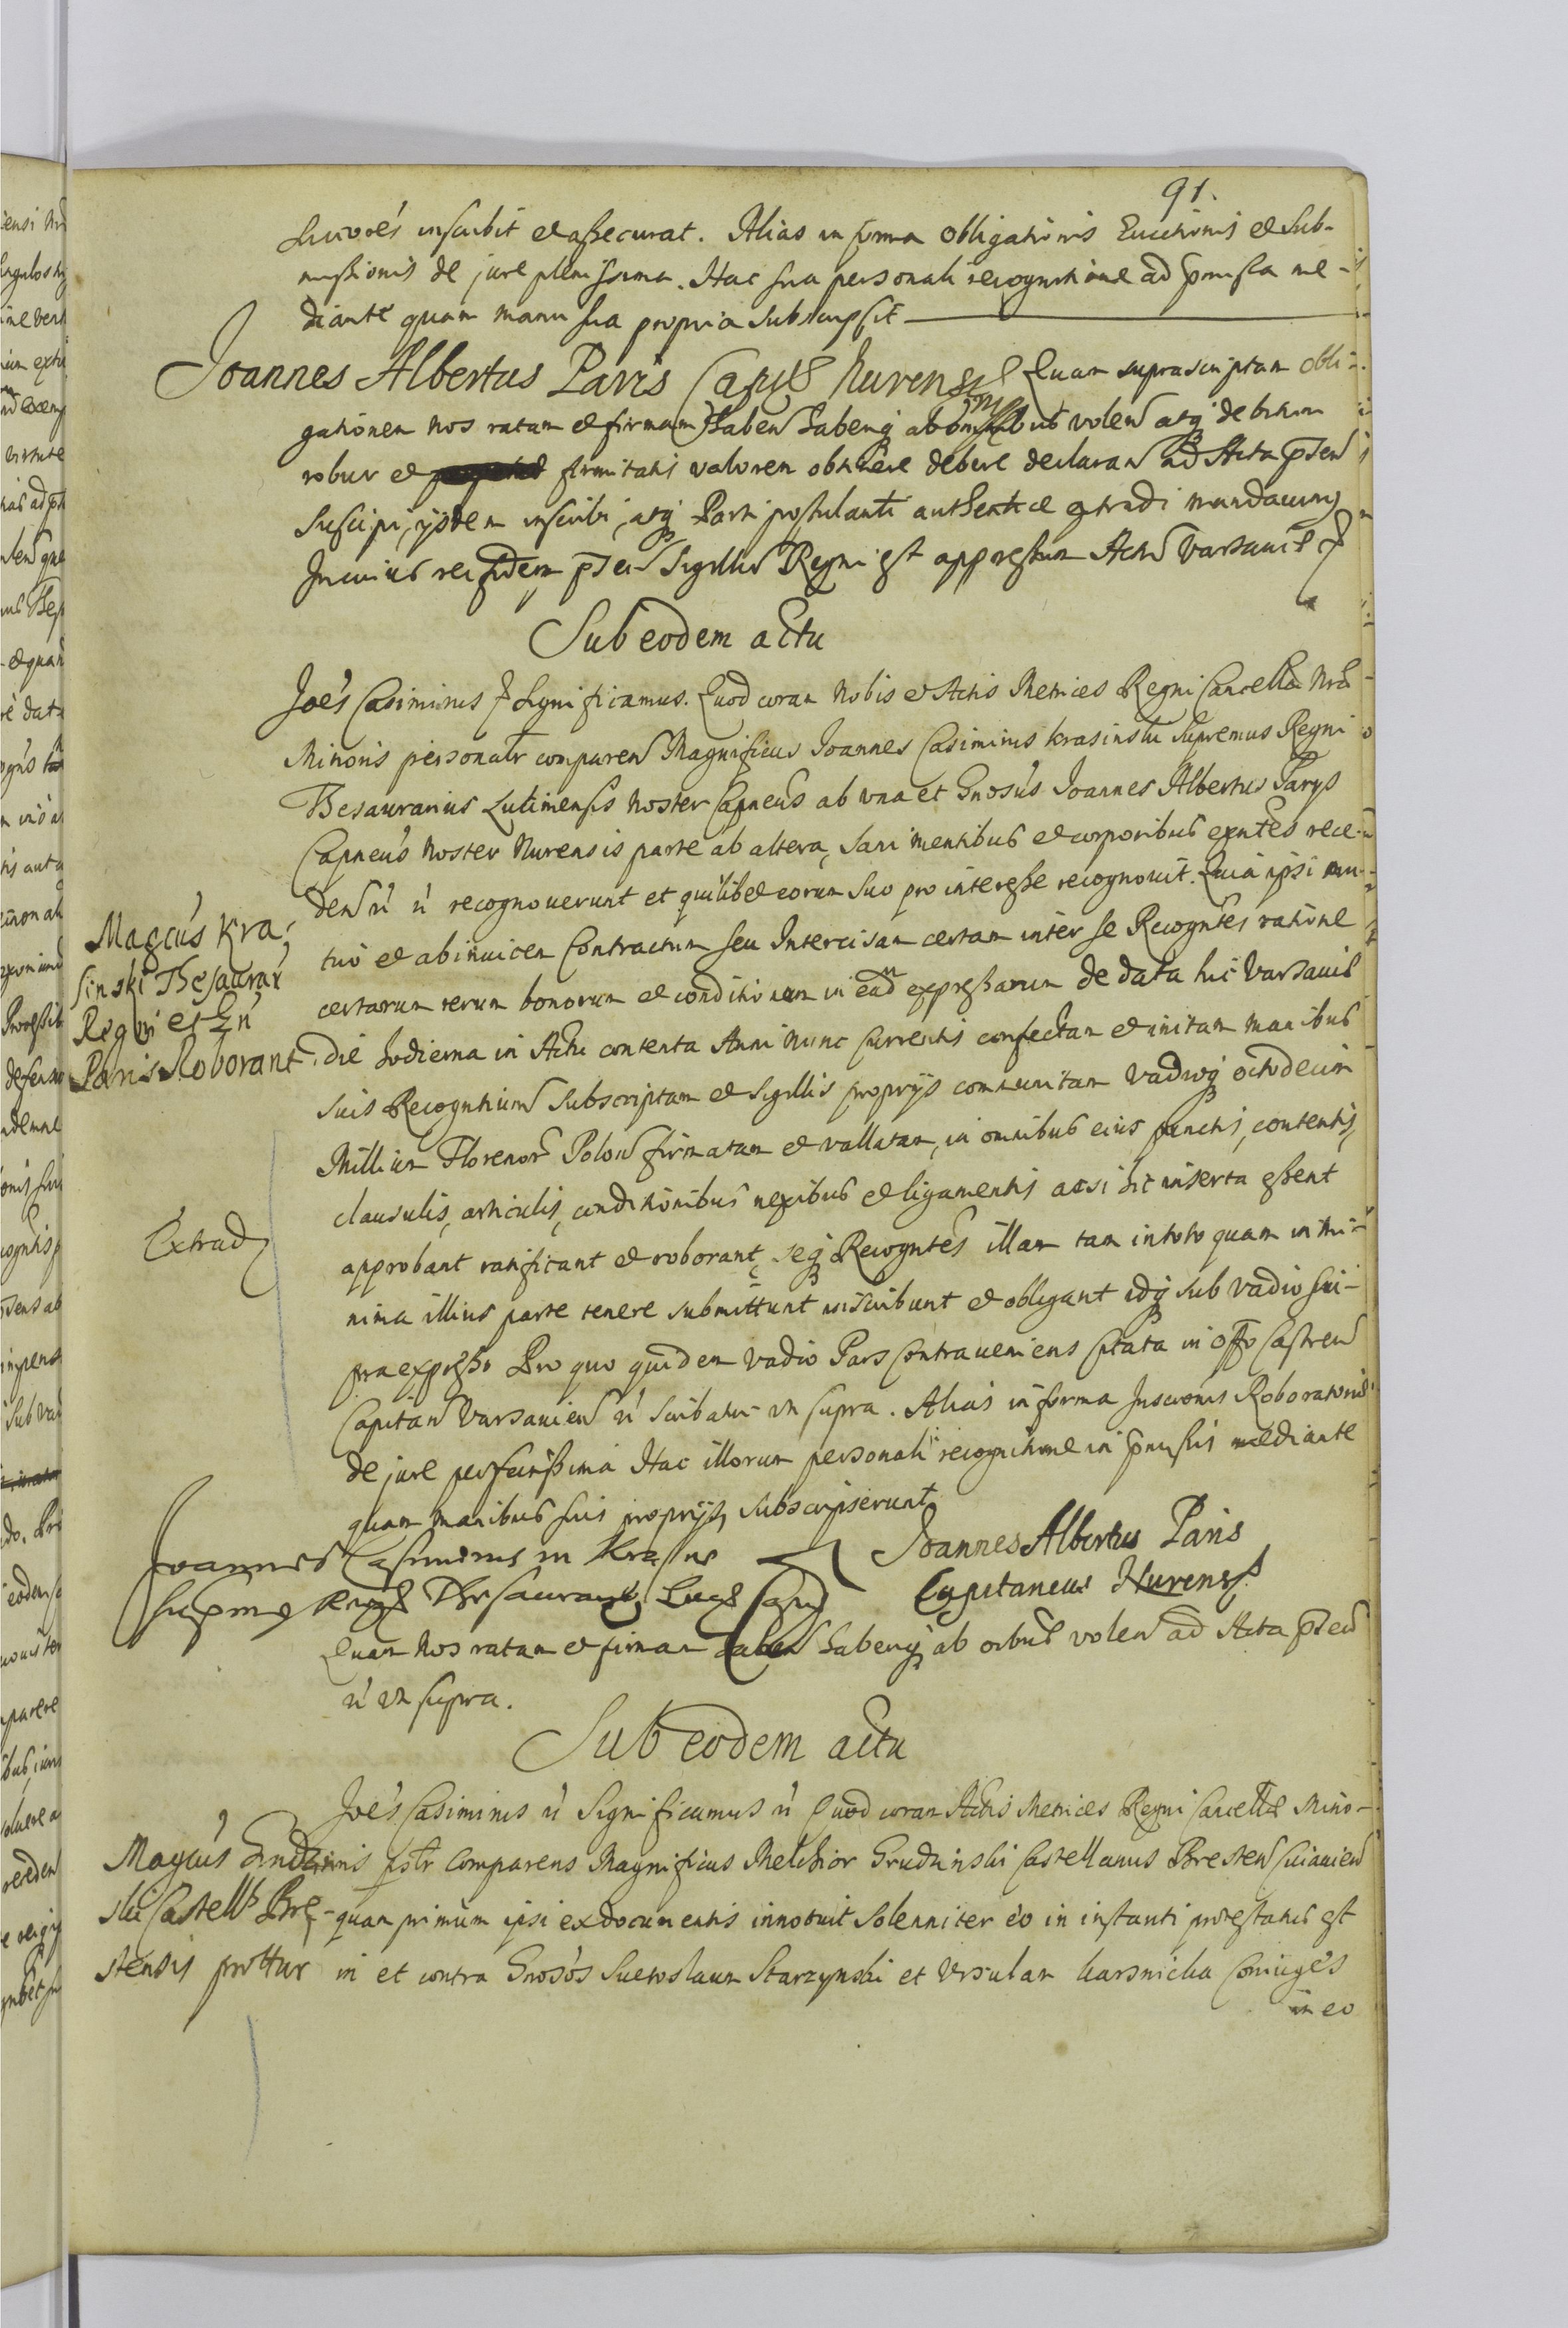 91.
inscribit et assecurat. Alias in forma obligationis Evictionis et Sub-
missionis de jure plenissima. Hac sua personali recognitione ad pmissa me-
diante quam manu sua propria subscripsit
Joannes Albertus Paris Capnus Nurensis Quam suprascriptam obli-
gationem nos ratam et firmam haben haberiq ab omnibus volen atq debitum
robur et firmitatis valorem obtinere debere declaran ad Acta psen
suscipi, ijsdem inscribi, atq Parti postulanti authentice extradi mandavimus
In cuius rei fidem psen Sigillum Regni est appressum Actu Varsaviae
Sub eodem actu
Joes Casimirus Significamus. Quod coram Nobis et Actis Metrices Regni Cancellae Nrae
Minoris personalr comparen Magnificus Joannes Casimirus Krasinski Supremus Regni
Thesaurarius Lutinensis Noster Capneus ab una et Gnosus Joannes Albertus Parys
Capneus Noster Nurensis parte ab altera, Sani mentibus et corporibus exntes rece-
den ut recognoverunt et quilibet eorum suo pro interesse recognovit. Quia ipsi mu-
tuo et ab invicem Contractum seu Intercisam certam inter se Recogntes ratione
certarum rerum bonorum et conditionum in eadm expressarum de data hic Varsaviae
die hodierna in Actu contenta Anni nunc currentis confectam et initam manibus
suis Recogntium subscriptam et Sigillis proprijs communitam Vadioq octodecim
Millium Florenor Polon firmatam et vallatam, in omnibus eius punctis, contentis,
clausulis, articulis, conditionibus nexibus et ligamentis acsi hic inserta essent
approbant ratificant et roborant, seq Recogntes illam tam in toto quam in mi-
nima illius parte tenere submittunt inscribunt et obligant idq sub vadio su-
pra expresso Pro quo quidem vadio Pars contraveniens citata in offo Castren
Capitan Varsavien ut scribatur ut supra. Alias in forma Inscrionis Roboratoriae
de jure perfectissima Hac illorum personali recognitione in pmissis mediante
quam manibus suis proprijs subscripserunt
Magcus Kra-
sinski Thesaurar
Regni et Gn
Paris Roborant
Extrad
Joannes Casimirus in Krasne
Supmus Regni Thesaurarius
Joannes Albertus Paris
Capitaneus Nurens.
Quam nos ratam et firmam haben haberiq ab oibus volen ad Acta psen
ut ut supra.
Sub eodem actu
Joes Casimirus ut Significamus ut Quod coram Actis Metrices Regni Cancellae Mino-
ris pslr Comparens Magnificus Melchior Grudzinski Castellanus Bresten Cuiavien
quam primum ipsi ex documentis innotuit solenniter eo in instanti protestatus est
in et contra Gnosos Suetoslaum Starzynski et Ursulam Karsnicka Coniuges
in eo
Magcus Grudzin
ski Castells Bre-
stensis prottur